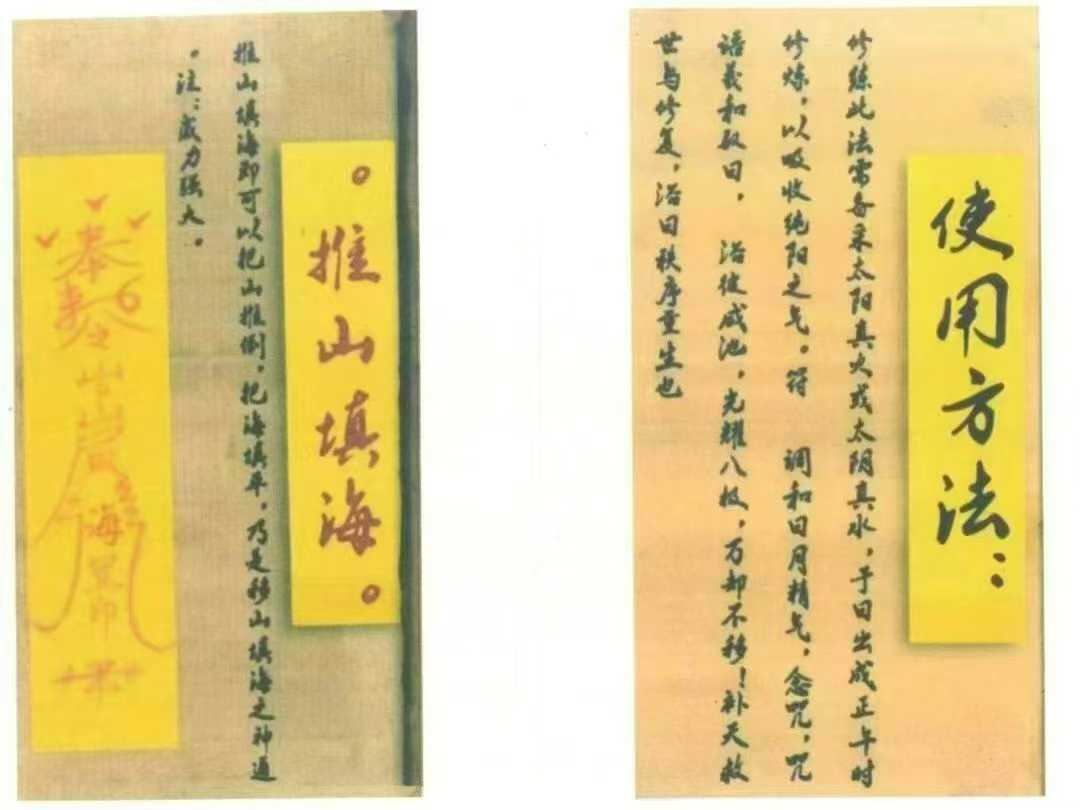 。推山填海。
推山填海即可以把山推倒，把海填平，乃是移山填海之神通
。注：威力强大。
奉
山
海
印
使用方法：
修练此法需备采太阳真火或太阴真水，于日出或正午时
修炼，以吸收纯阳之气。符 调和日月精气，念咒，咒
语羲和敕曰， 浴彼咸池，光耀八极，万却不移！补天救
世与修复，浴日秩序重生也